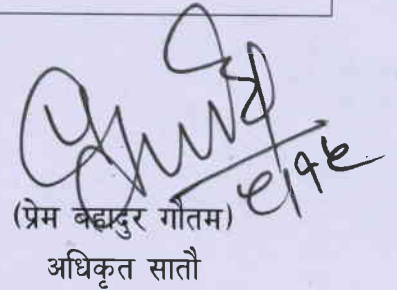 ५।१५
(प्रेम बहादुर गौतम)
अधिकृत सातौ